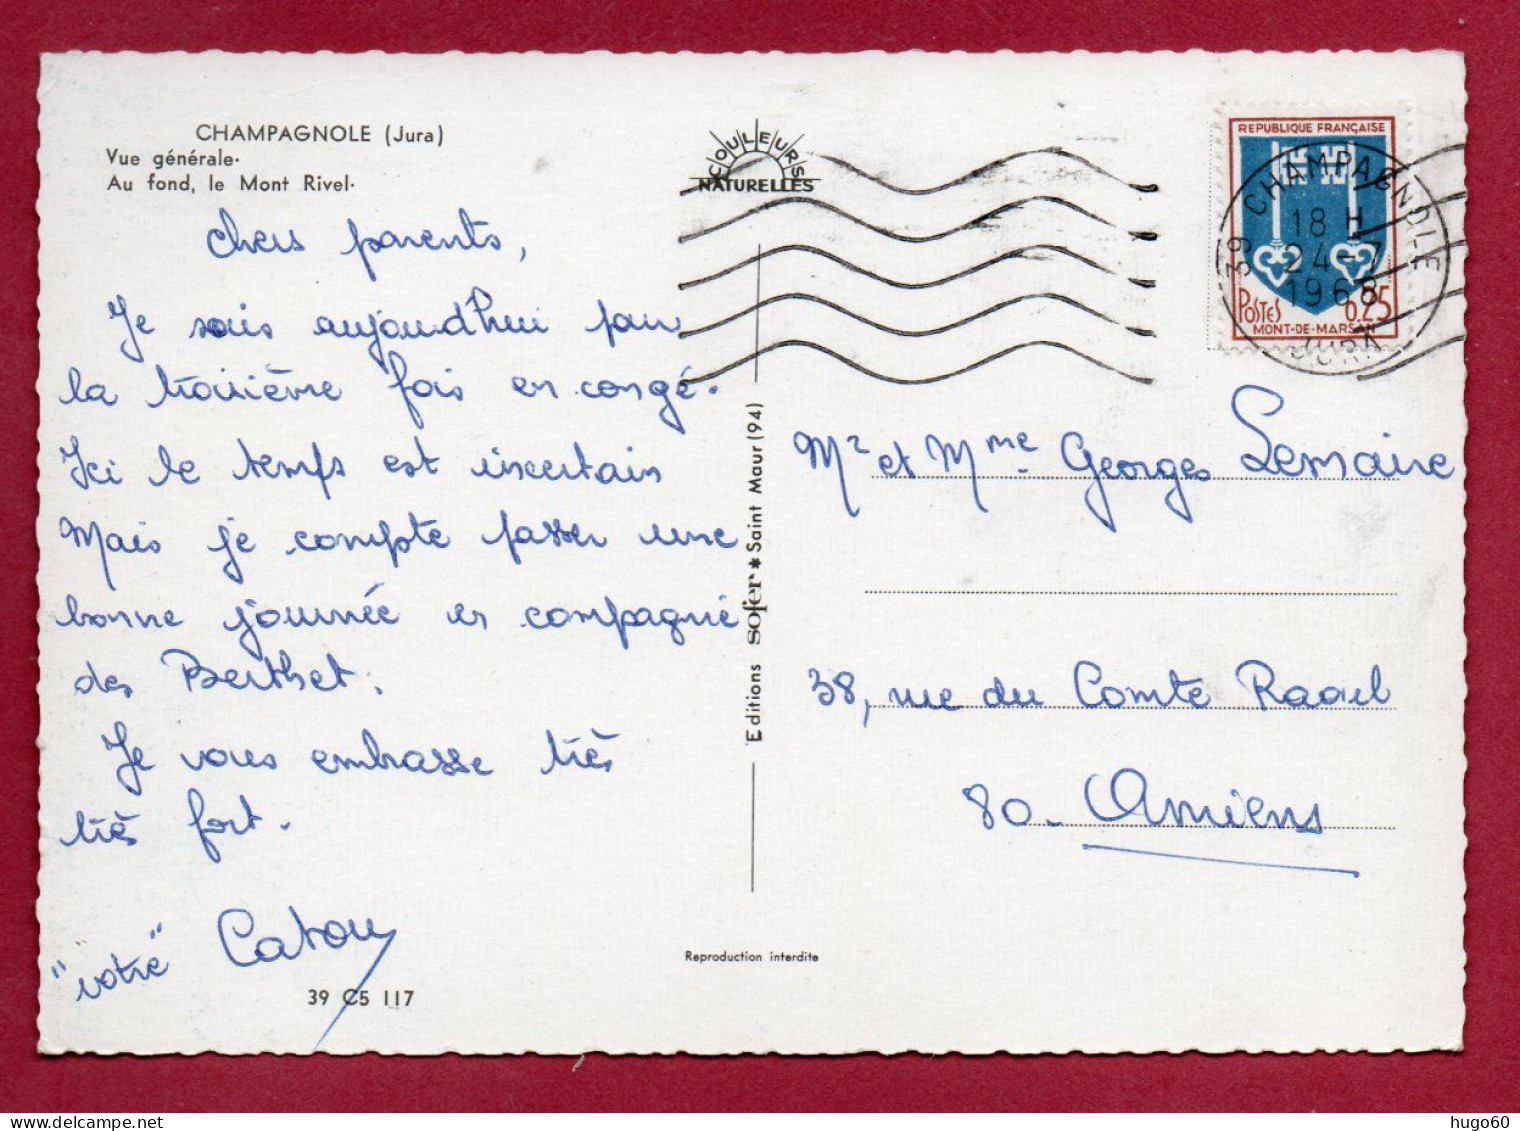 CHAMPAGNOLE (Jura)
Vue générale.
Au fond, le Mont Rivel.
Chers parents,
Je suis aujourd'hui pour
la troisième fois en congé.
Ici le temps est incertain
Mais je compte passer une
bonne journée en compagnie
des Berthet.
Je vous embrasse très
très fort.
"votre" Catou
39 C5 117
COULEURS
NATURELLES
Editions sofer * Saint Maur (94)
Reproduction interdite
REPUBLIQUE FRANÇAISE
POSTES 0,25
MONT-DE-MARSAN
39 CHAMPAGNOLE
18 H
24-7
1968
JURA
Mr et Mme Georges Lemaire
38, rue du Comte Raoul
80. Amiens
hugo60